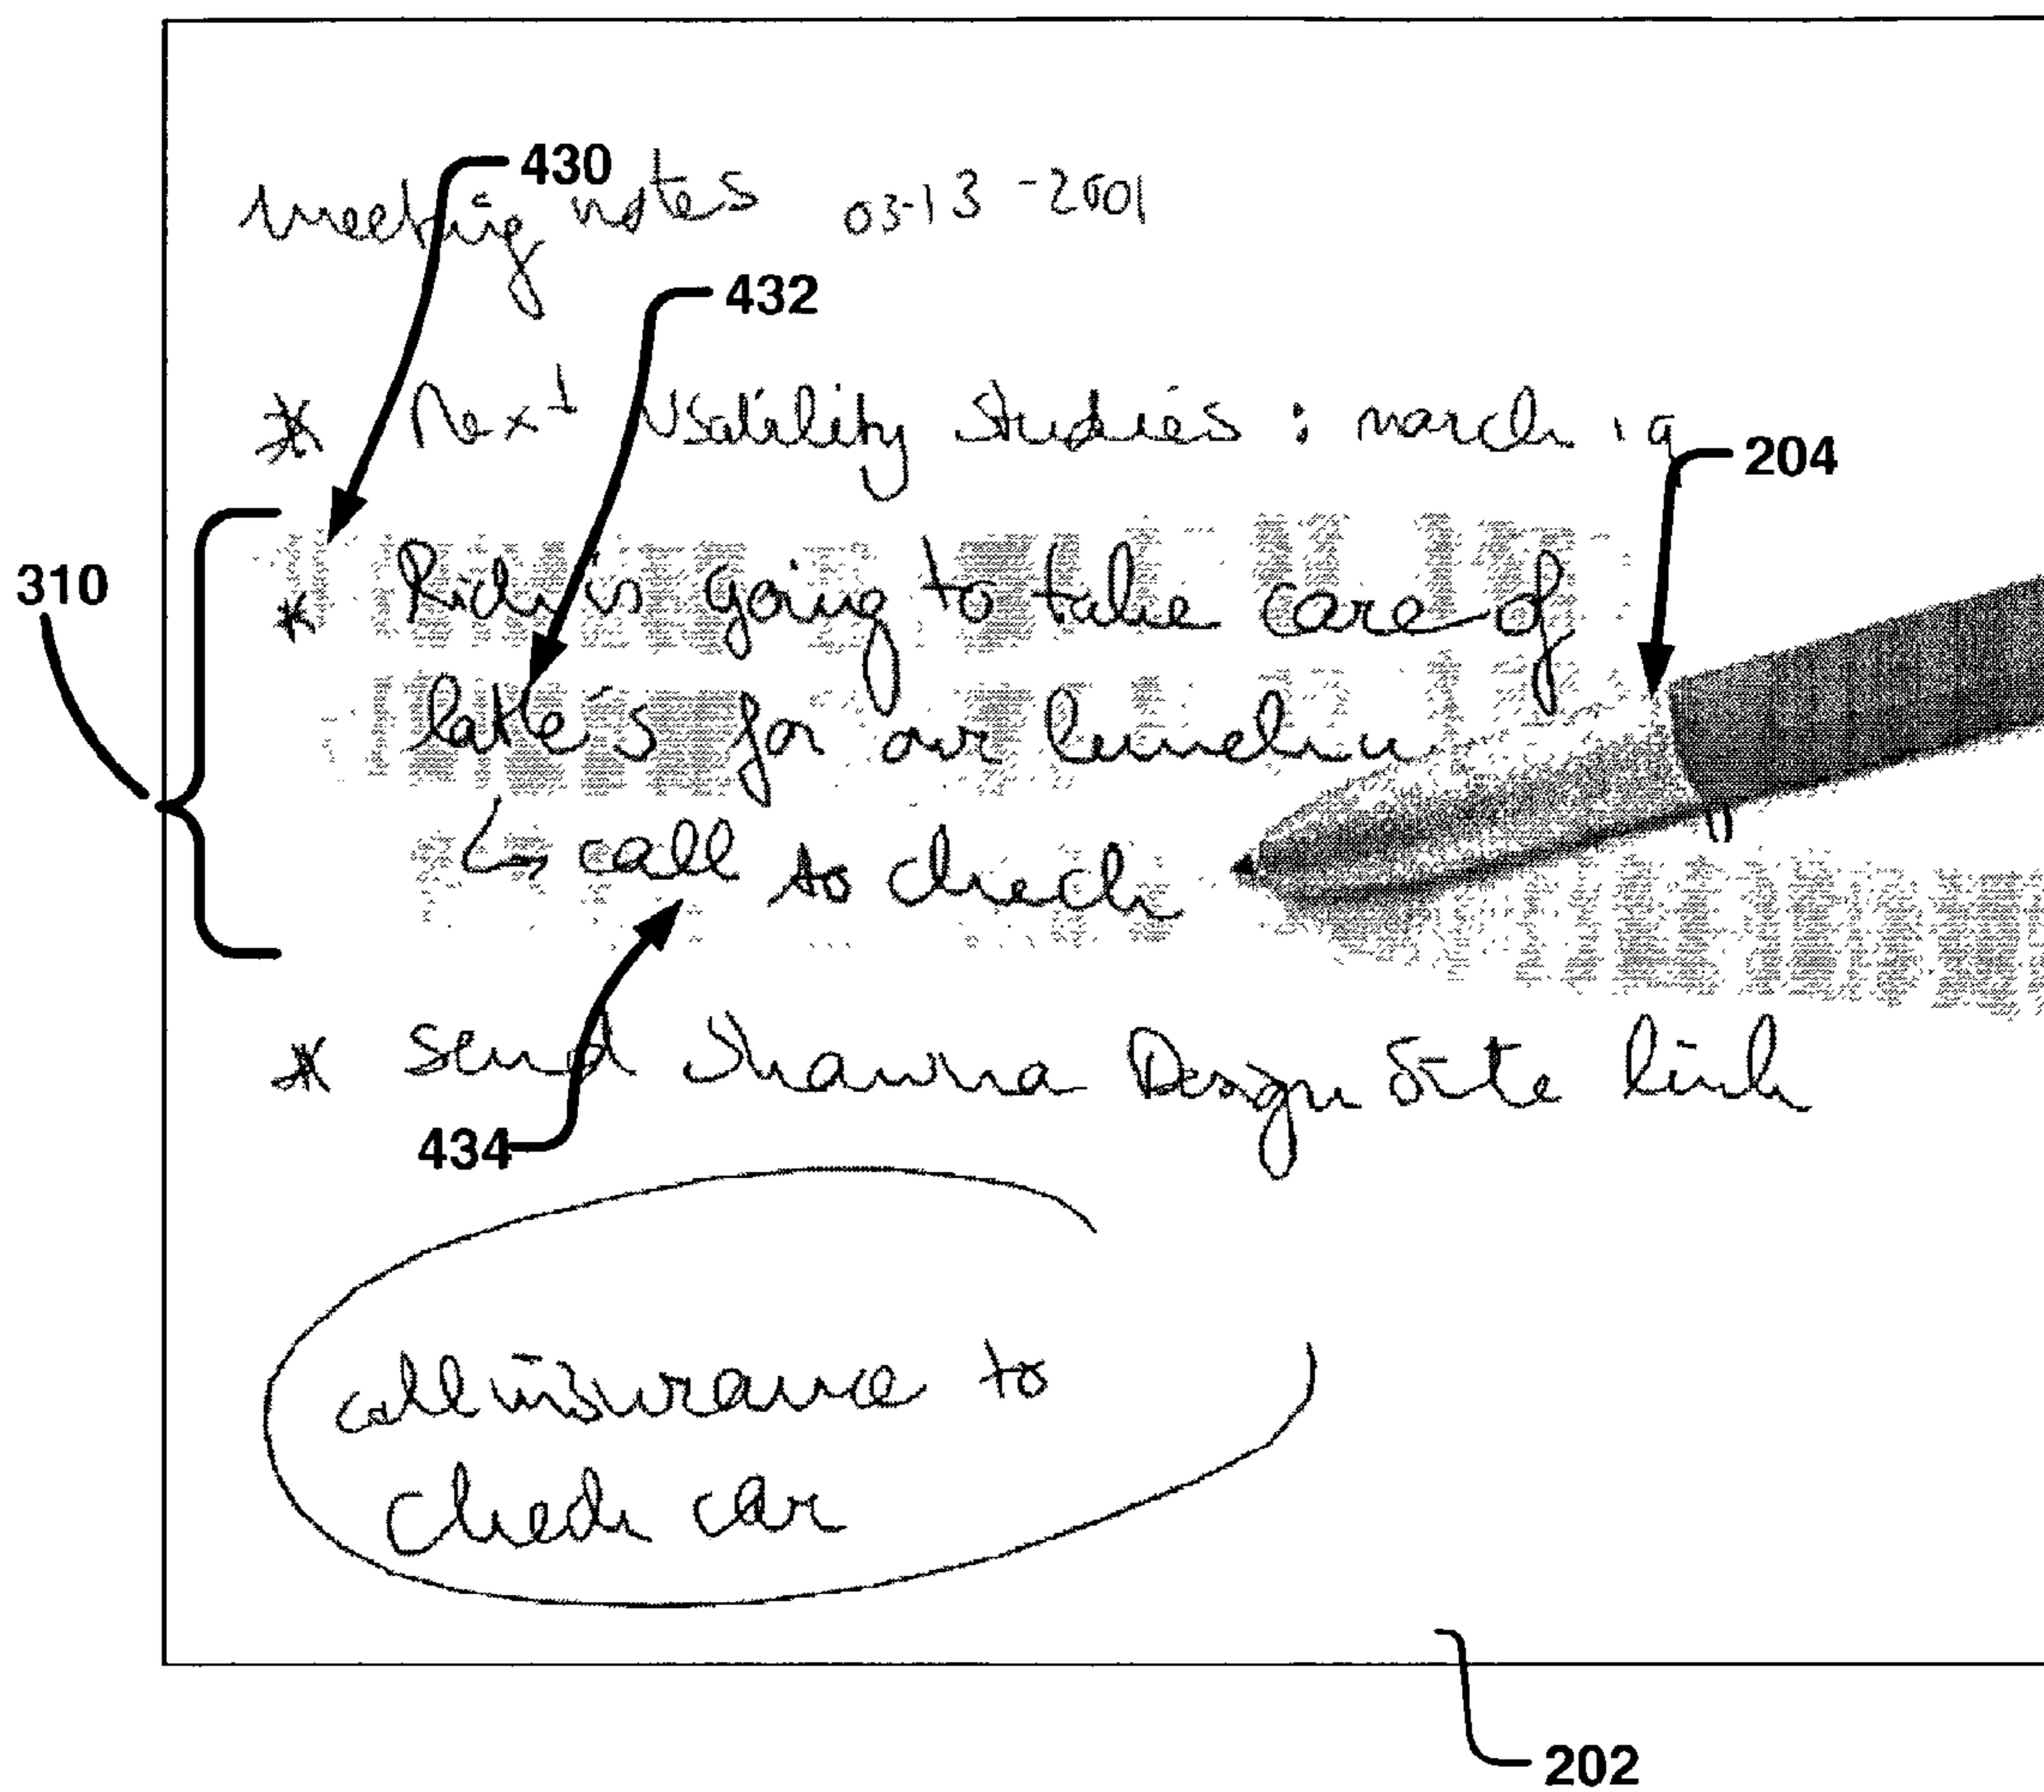 430
meeting notes 03-13-2001
432
* Next Usability Studies : march 19
204
310
* Rich is going to take care of
latte's for our lunch
↳ call to check
* Send Shawna Design Site link
434
call insurance to
check car
202